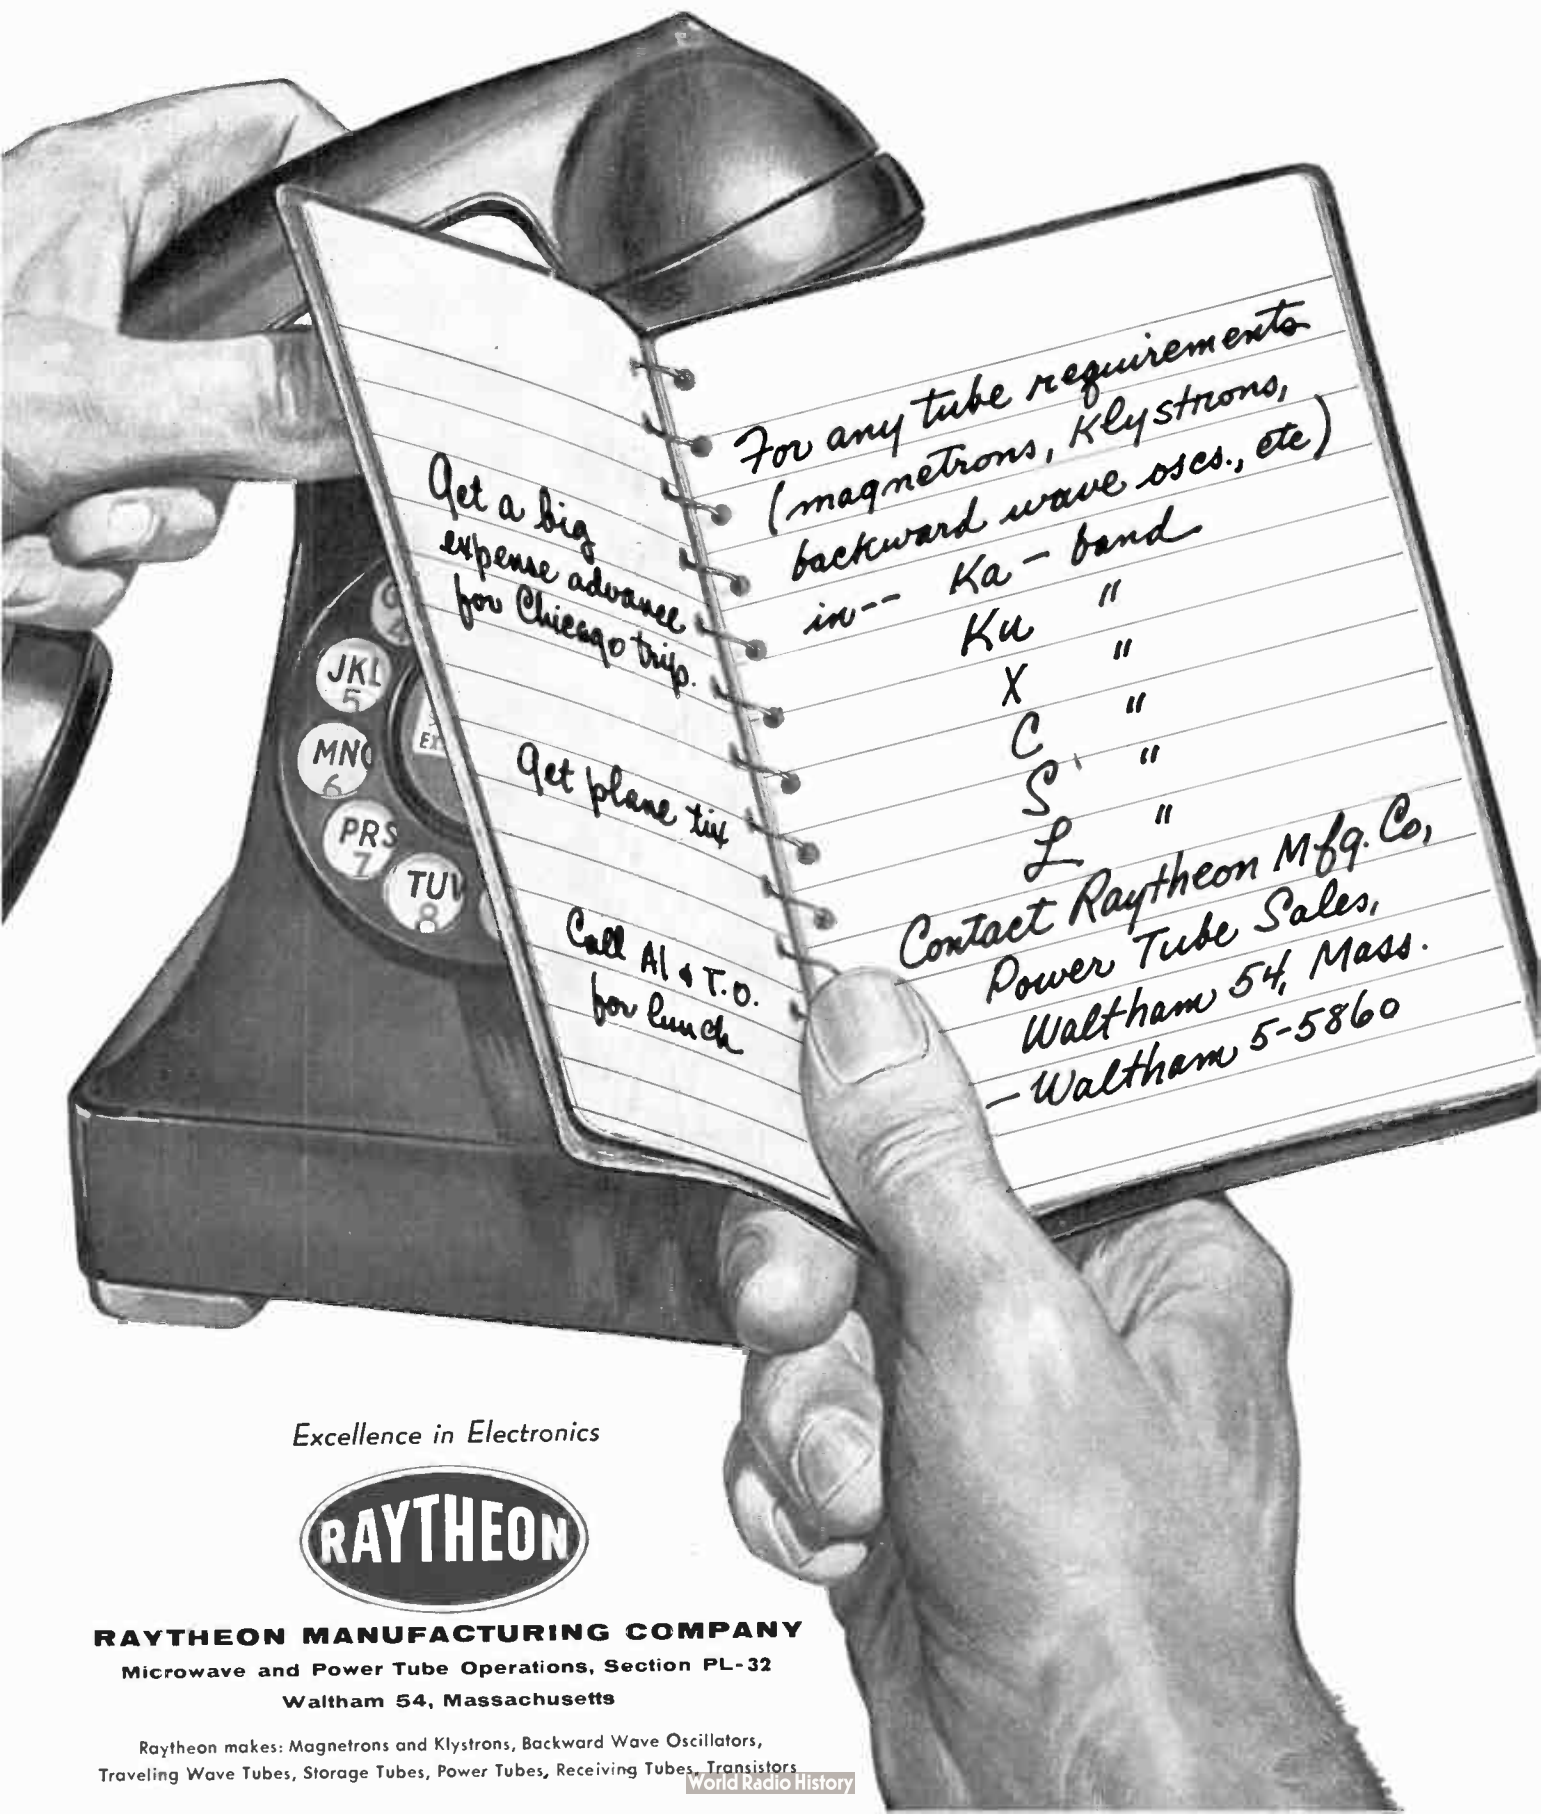 Get a big
expense advance
for Chicago trip.
Get plane tix
Call Al & T.O.
for lunch
For any tube requirements
(magnetrons, Klystrons,
backward wave oscs., etc)
in-- Ka - band
Ku "
X "
C "
S "
L "
Contact Raytheon Mfg. Co,
Power Tube Sales,
Waltham 54, Mass.
- Waltham 5-5860
JKL
5
MNO
6
PRS
7
TUV
8
Excellence in Electronics
RAYTHEON
RAYTHEON MANUFACTURING COMPANY
Microwave and Power Tube Operations, Section PL-32
Waltham 54, Massachusetts
Raytheon makes: Magnetrons and Klystrons, Backward Wave Oscillators,
Traveling Wave Tubes, Storage Tubes, Power Tubes, Receiving Tubes, Transistors
World Radio History